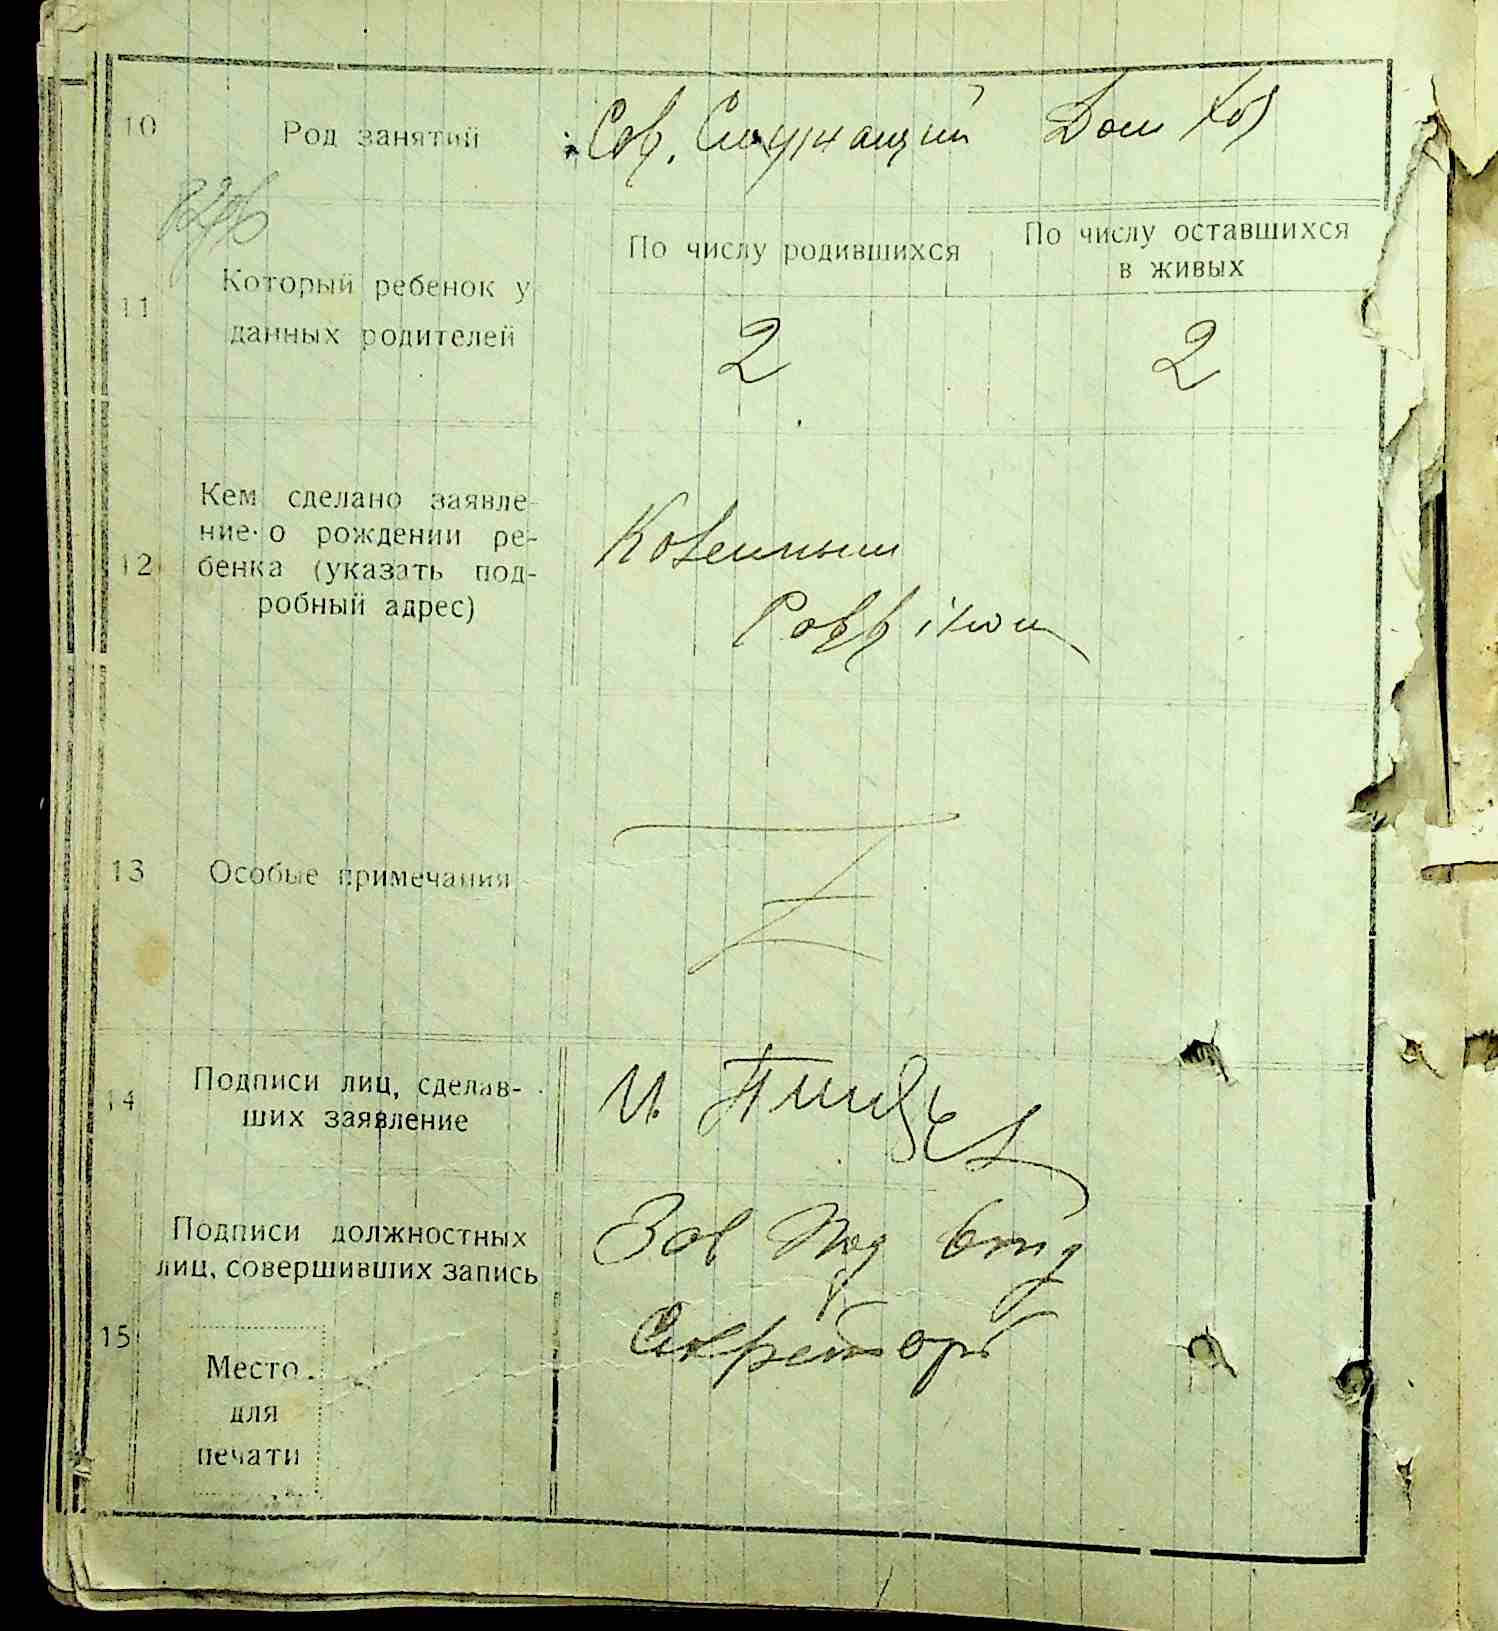 10 Род занятий Сов. Служащий Дом Хоз
11 Который ребенок у
данных родителей
По числу родившихся
2
По числу оставшихся
в живых
2
12 Кем сделано заявле-
ние о рождении ре-
бенка (указать под-
робный адрес)
13 Особые примечания
14 Подписи лиц, сделав-
ших заявление
И.
15 Подписи должностных
лиц, совершивших запись
Зав
Секретарь
Место
для
печати